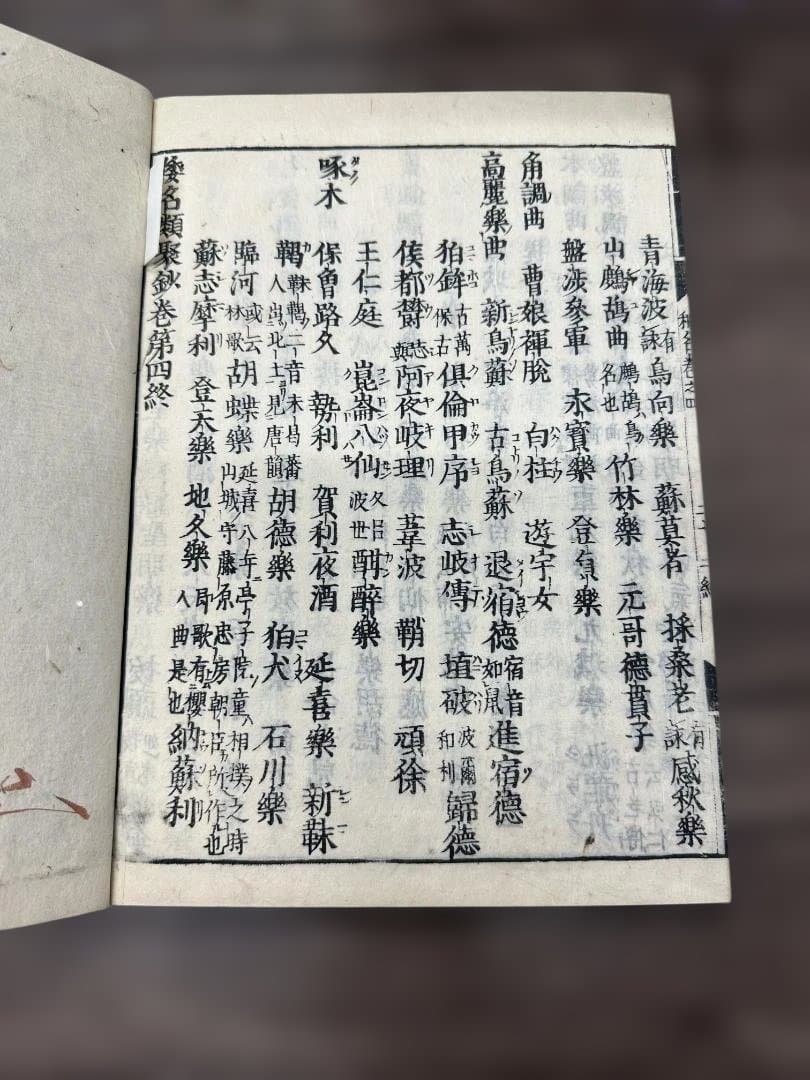 青海波有詠鳥向樂 蘇莫者 採桑老有詠感秋樂
山鷓鴣曲鷓鴣鳥名也竹林樂 元哥德貫子
盤渉參軍 承寶樂 登貞樂
角調曲 曹娘褌脫 白柱 遊字女
高麗樂曲 新鳥蘇 古鳥蘇 退宿德宿音如鼠進宿德
狛鉾古萬保古俱倫甲序 志岐傳 埴破波爾和利歸德
侯都賛志與阿夜岐理 葦波 鞘切 頑徐
王仁庭 崑崙八仙久呂波世酣醉樂
啄木
保魯路久 㔟利 賀利夜酒 延喜樂 新靺
鞨靺鞨二音末曷蕃人出北土見唐韻胡德樂 狛犬 石川樂
臨河或云林歌胡蝶樂延喜八年童子院童相撲之時山城守藤原忠房朝臣所作也
蘇志摩利 登天樂 地久樂局歌有櫻人曲是也納蘇利
倭名類聚鈔卷第四終